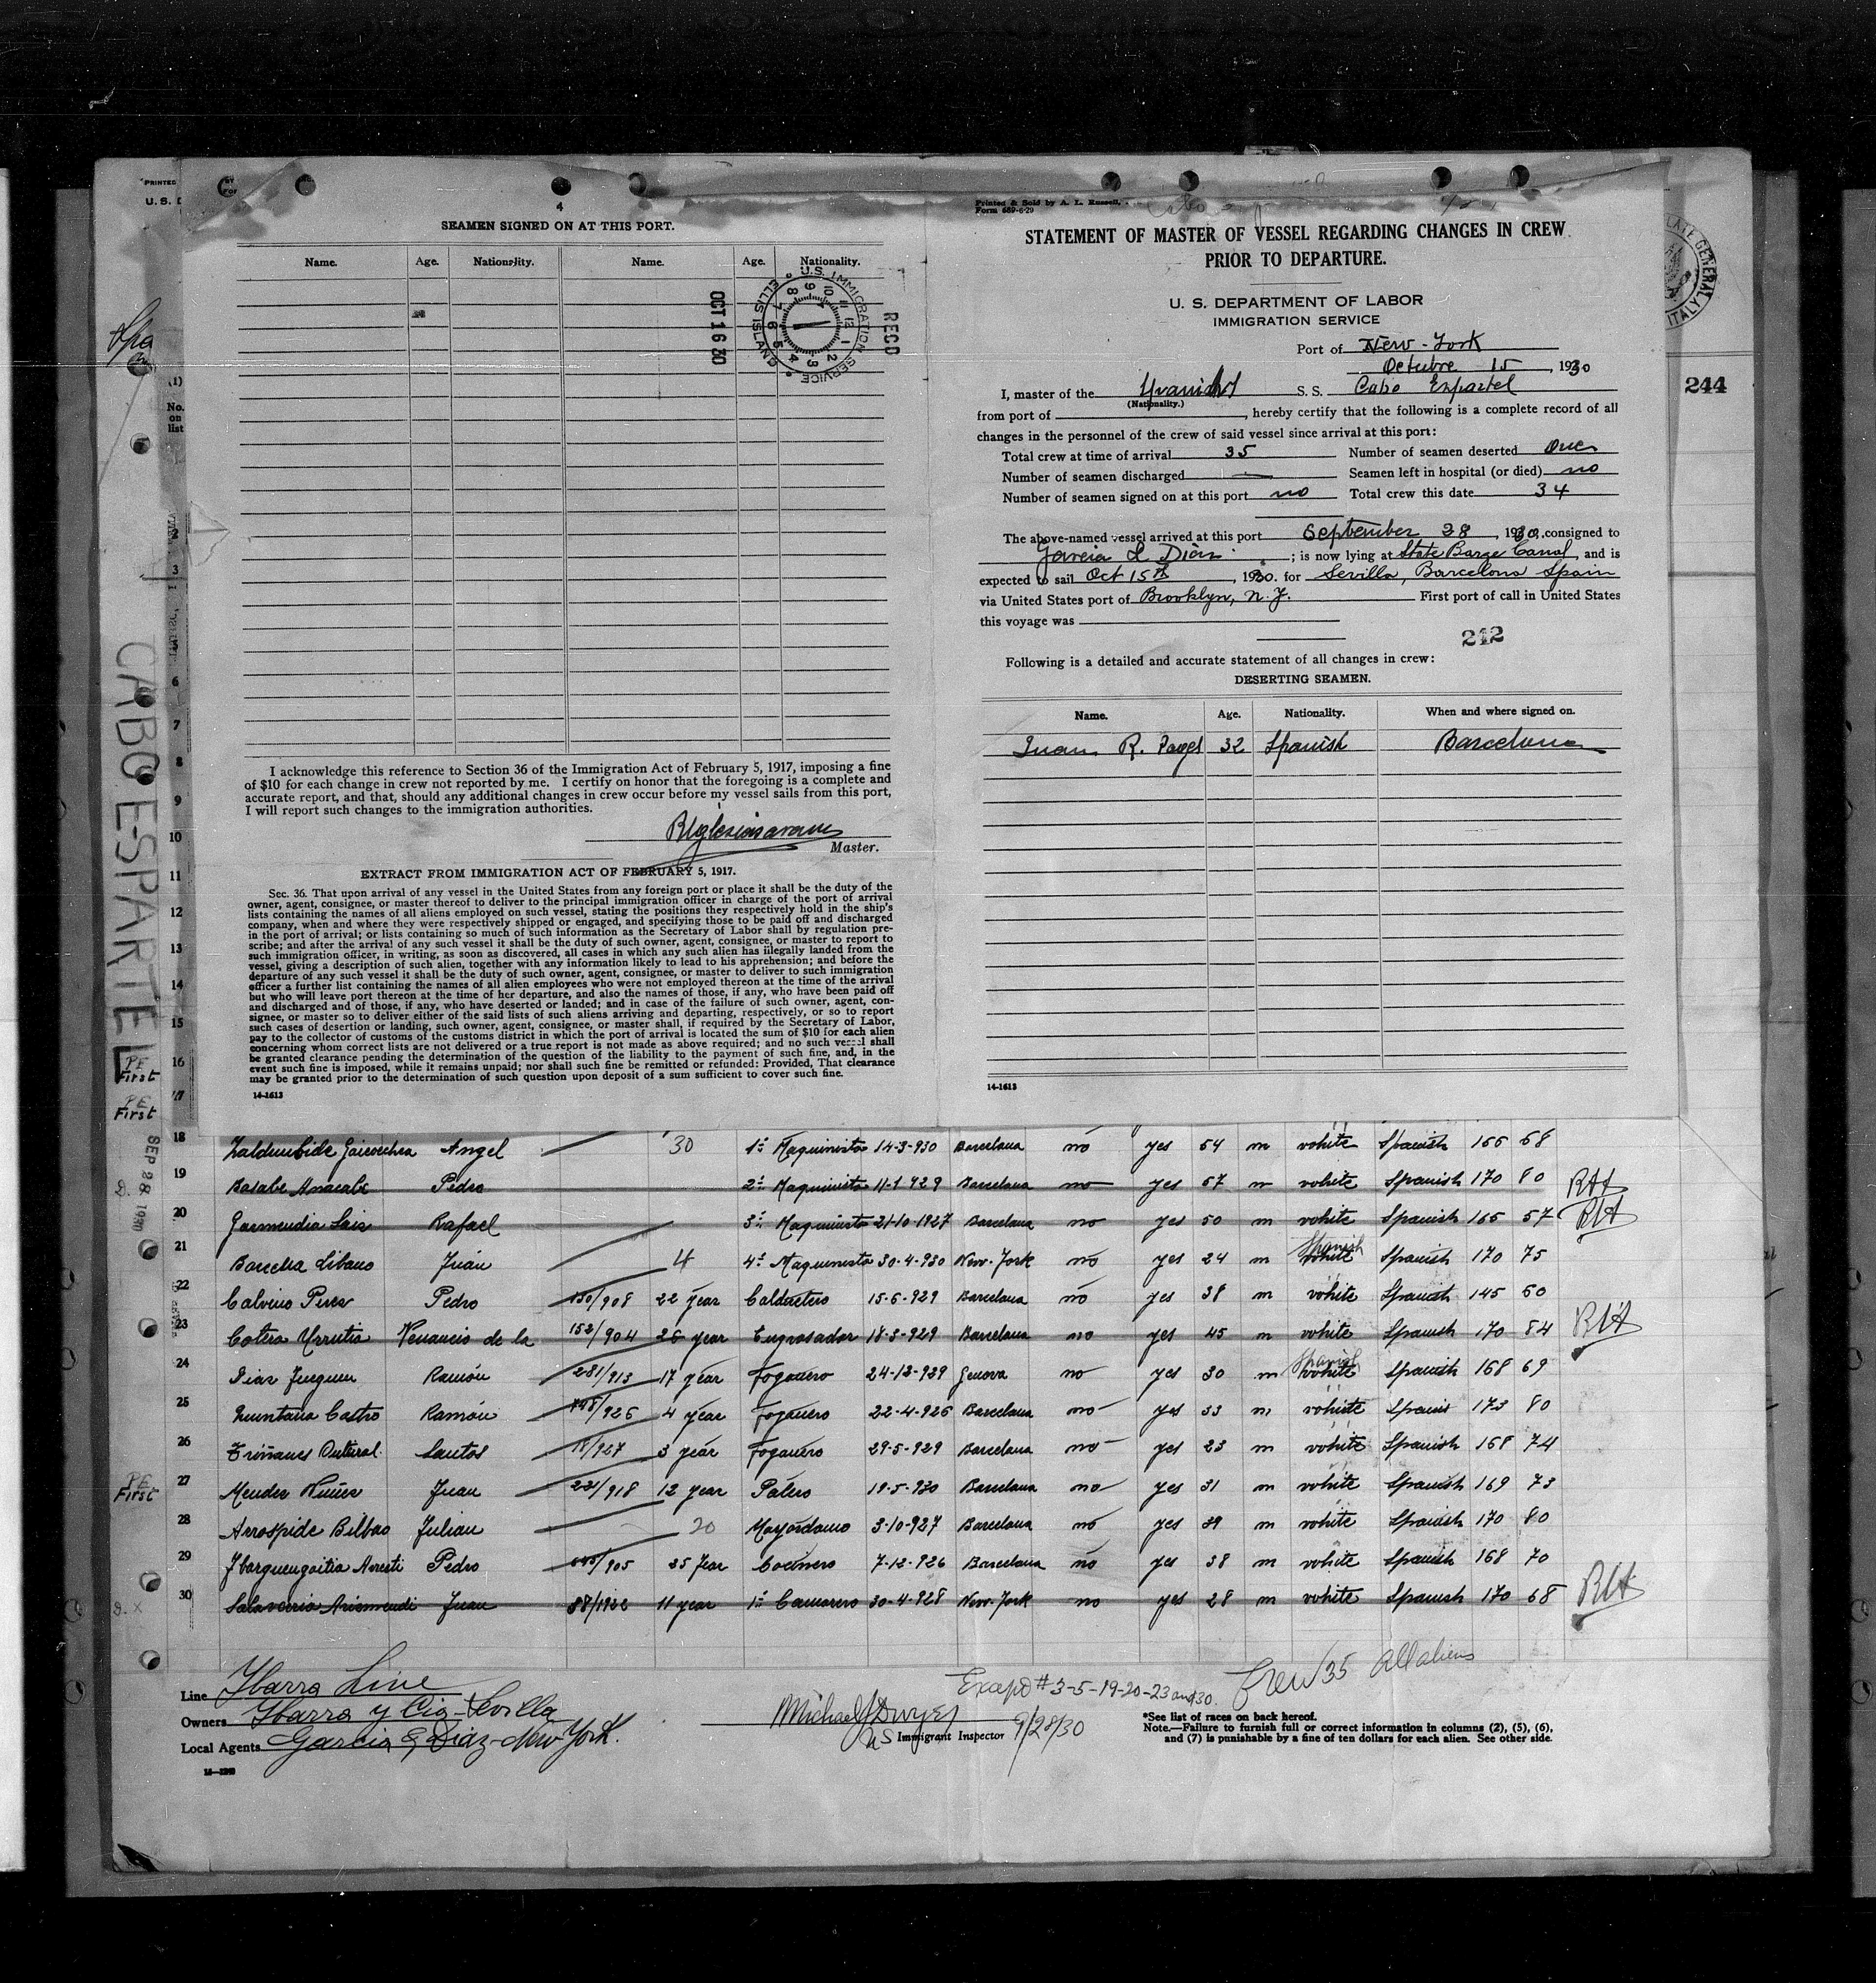 PRINTED
U. S. D
4
SEAMEN SIGNED ON AT THIS PORT.
Name. Age. Nationality. Name. Age. Nationality.
OCT 16 30
U.S. IMMIGRATION SERVICE ELLIS ISLAND
REC'D
I acknowledge this reference to Section 36 of the Immigration Act of February 5, 1917, imposing a fine
of $10 for each change in crew not reported by me. I certify on honor that the foregoing is a complete and
accurate report, and that, should any additional changes in crew occur before my vessel sails from this port,
I will report such changes to the immigration authorities.
Master.
EXTRACT FROM IMMIGRATION ACT OF FEBRUARY 5, 1917.
Sec. 36. That upon arrival of any vessel in the United States from any foreign port or place it shall be the duty of the
owner, agent, consignee, or master thereof to deliver to the principal immigration officer in charge of the port of arrival
lists containing the names of all aliens employed on such vessel, stating the positions they respectively hold in the ship's
company, when and where they were respectively shipped or engaged, and specifying those to be paid off and discharged
in the port of arrival; or lists containing so much of such information as the Secretary of Labor shall by regulation pre-
scribe; and after the arrival of any such vessel it shall be the duty of such owner, agent, consignee, or master to report to
such immigration officer, in writing, as soon as discovered, all cases in which any such alien has illegally landed from the
vessel, giving a description of such alien, together with any information likely to lead to his apprehension; and before the
departure of any such vessel it shall be the duty of such owner, agent, consignee, or master to deliver to such immigration
officer a further list containing the names of all alien employees who were not employed thereon at the time of the arrival
but who will leave port thereon at the time of her departure, and also the names of those, if any, who have been paid off
and discharged and of those, if any, who have deserted or landed; and in case of the failure of such owner, agent, con-
signee, or master so to deliver either of the said lists of such aliens arriving and departing, respectively, or so to report
such cases of desertion or landing, such owner, agent, consignee, or master shall, if required by the Secretary of Labor,
pay to the collector of customs of the customs district in which the port of arrival is located the sum of $10 for each alien
concerning whom correct lists are not delivered or a true report is not made as above required; and no such vessel shall
be granted clearance pending the determination of the question of the liability to the payment of such fine, and, in the
event such fine is imposed, while it remains unpaid; nor shall such fine be remitted or refunded: Provided, That clearance
may be granted prior to the determination of such question upon deposit of a sum sufficient to cover such fine.
14-1613
Printed & Sold by A. L. Russell,
Form 689-6-29
STATEMENT OF MASTER OF VESSEL REGARDING CHANGES IN CREW
PRIOR TO DEPARTURE.
U. S. DEPARTMENT OF LABOR
IMMIGRATION SERVICE
Port of New-York
Octubre 15, 1930
I, master of the S. S. Cabo Espartel
(Nationality.)
from port of , hereby certify that the following is a complete record of all
changes in the personnel of the crew of said vessel since arrival at this port:
Total crew at time of arrival 35 Number of seamen deserted One
Number of seamen discharged — Seamen left in hospital (or died) no
Number of seamen signed on at this port no Total crew this date 34
The above-named vessel arrived at this port September 28, 1930, consigned to
Garcia & Diaz ; is now lying at State Barge Canal, and is
expected to sail Oct 15th, 1930. for Sevilla, Barcelona Spain
via United States port of Brooklyn, N.Y. First port of call in United States
this voyage was
242
Following is a detailed and accurate statement of all changes in crew:
DESERTING SEAMEN.
Name. Age. Nationality. When and where signed on.
Juan R. 32 Spanish Barcelona
14-1613
244
CABO ESPARTEL
(1)
No.
on
list
2
3
5
6
7
8
9
10
11
12
13
14
15
PE First 16
PE First 17
SEP 28 1930
18 Angel 30 1º Maquinista 14-3-930 Barcelona no yes 54 m vohite Spanish 165 68
19 Pedro 2º Maquinista 11-1-929 Barcelona no yes 57 m vohite Spanish 170 80
20 Rafael 3º Maquinista 21-10-1927 Barcelona no yes 50 m vohite Spanish 165 57
21 Juán 4 4º Maquinista 30-4-930 New-York no yes 24 m Spanish Spanish 170 75
22 Calvino Perez Pedro 22 year 15-6-929 Barcelona no yes 38 m vohite Spanish 145 60
23 Cotera Urrutia Venancio de la 153/904 26 year Engrasador 18-3-929 Barcelona no yes 45 m vohite Spanish 170 84
24 Ramón 281/913 17 year Fogonero 24-12-929 Genova no yes 30 m Spanish Spanish 168 69
25 Quintana Castro Ramón 4 year Fogonero 22-4-926 Barcelona no yes 33 m vohite Spanish 173 80
26 Santos 18/927 3 year Fogonero 29-5-929 Barcelona no yes 23 m vohite Spanish 168 74
PE First 27 Mendez Nuñez Juan 231/918 12 year Palero 19-5-930 Barcelona no yes 31 m vohite Spanish 169 73
28 Arrospide Bilbao Julian 20 Mayordomo 3-10-927 Barcelona no yes 39 m vohite Spanish 170 80
29 Pedro 25 year Cocinero 7-12-926 Barcelona no yes 38 m vohite Spanish 168 70
30 Salaverria Arismendi Juan 11 year 1º Camarero 30-4-928 New-York no yes 28 m vohite Spanish 170 68
Line Ybarra Line
Owners Ybarra y Cia-Sevilla
Local Agents Garcia & Diaz-New York.
Michael J Dwyer
US Immigrant Inspector 9/28/30
# 3-5-19-20-23 and 30. Crew 35 All aliens
*See list of races on back hereof.
Note.—Failure to furnish full or correct information in columns (2), (5), (6),
and (7) is punishable by a fine of ten dollars for each alien. See other side.